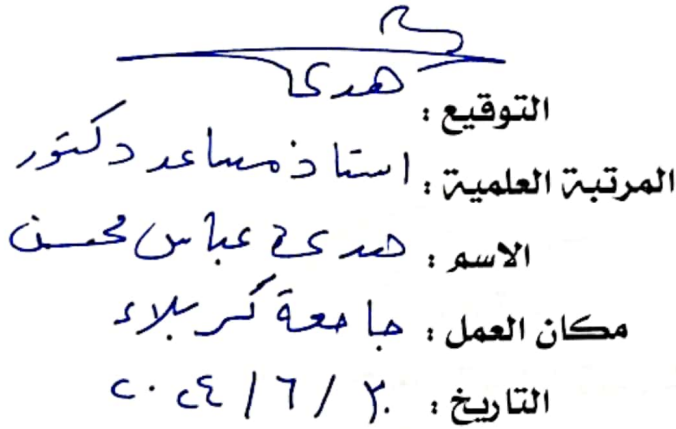 هدى
التوقيع :
المرتبة العلمية : استاذ مساعد دكتور
الاسم : هدى عباس محسن
مكان العمل : جامعة كربلاء
التاريخ : ٣٠ / ٦ / ٢٠٢٤